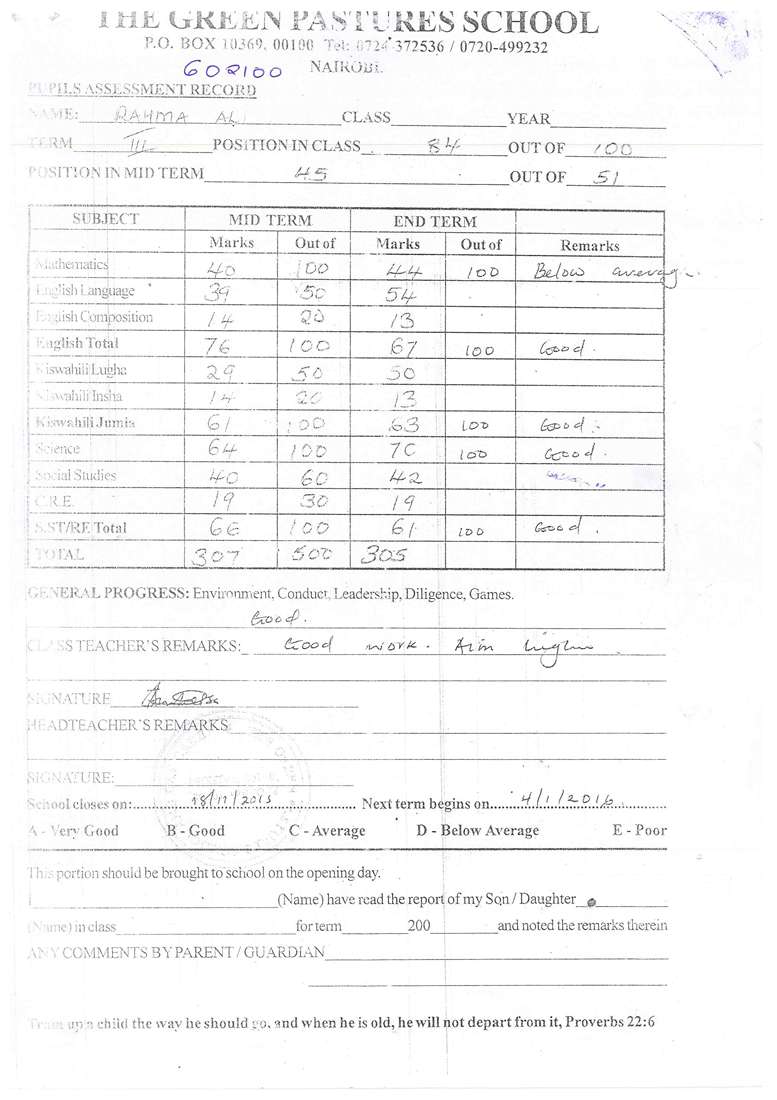 THE GREEN PASTURES SCHOOL
P.O. BOX 10369, 00100 Tel: 0724-372536 / 0720-499232
602100 NAIROBI.
PUPILS ASSESSMENT RECORD
NAME: RAHMA ALI CLASS YEAR
TERM III POSITION IN CLASS 84 OUT OF 100
POSITION IN MID TERM 45 OUT OF 51
SUBJECT MID TERM END TERM
Marks Out of Marks Out of Remarks
Mathematics 40 100 44 100 Below average
English Language 39 50 54
English Composition 14 20 13
English Total 76 100 67 100 Good.
Kiswahili Lugha 29 50 50
Kiswahili Insha 14 20 13
Kiswahili Jumla 61 100 63 100 Good.
Science 64 100 70 100 Good.
Social Studies 40 60 42
C.R.E. 19 30 19
S.ST/RE Total 66 100 61 100 Good.
TOTAL 307 500 305
GENERAL PROGRESS: Environment, Conduct, Leadership, Diligence, Games.
Good.
CLASS TEACHER'S REMARKS: Good work. Aim higher
SIGNATURE
HEADTEACHER'S REMARKS
SIGNATURE:
School closes on: 18/11/2015 Next term begins on 4/1/2016
A - Very Good B - Good C - Average D - Below Average E - Poor
This portion should be brought to school on the opening day.
I (Name) have read the report of my Son / Daughter
(Name) in class for term 200 and noted the remarks therein
ANY COMMENTS BY PARENT / GUARDIAN
Train up a child the way he should go, and when he is old, he will not depart from it, Proverbs 22:6